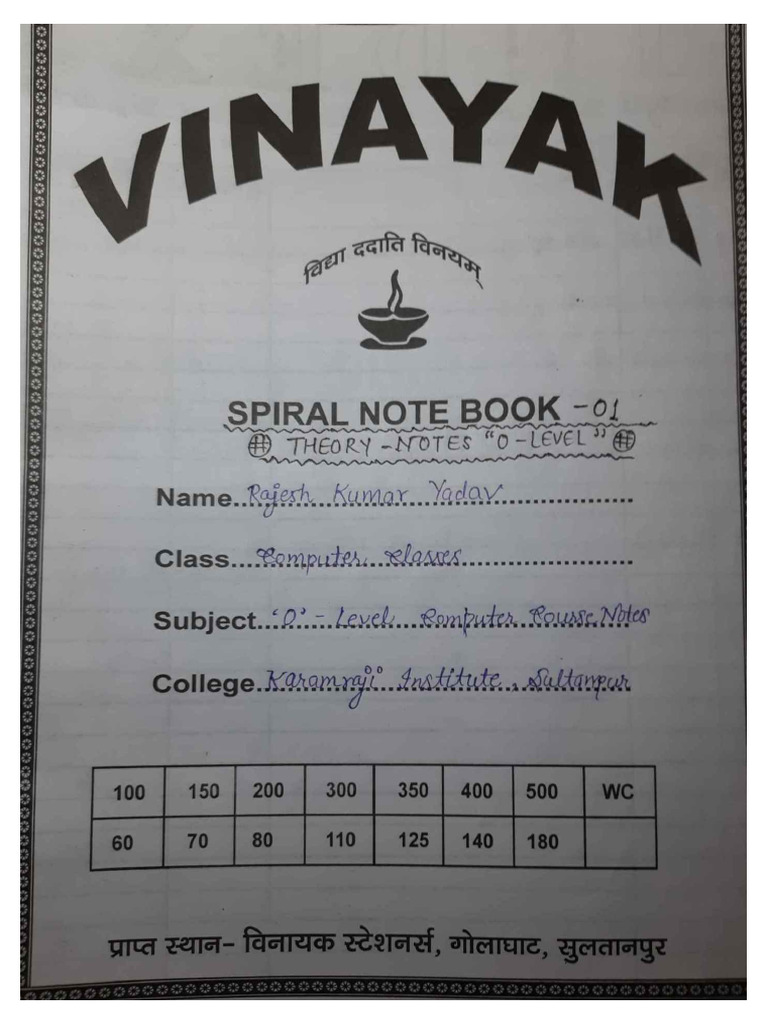 VINAYAK
विद्या ददाति विनयम्
SPIRAL NOTE BOOK -01
THEORY -NOTES "O-LEVEL"
Name..Rajesh Kumar Yadav
Class....Computer Classes
Subject...'O'-Level Computer Course Notes
College..Karamraji Institute, Sultanpur
100 150 200 300 350 400 500 WC
60 70 80 110 125 140 180
प्राप्त स्थान- विनायक स्टेशनर्स, गोलाघाट, सुलतानपुर